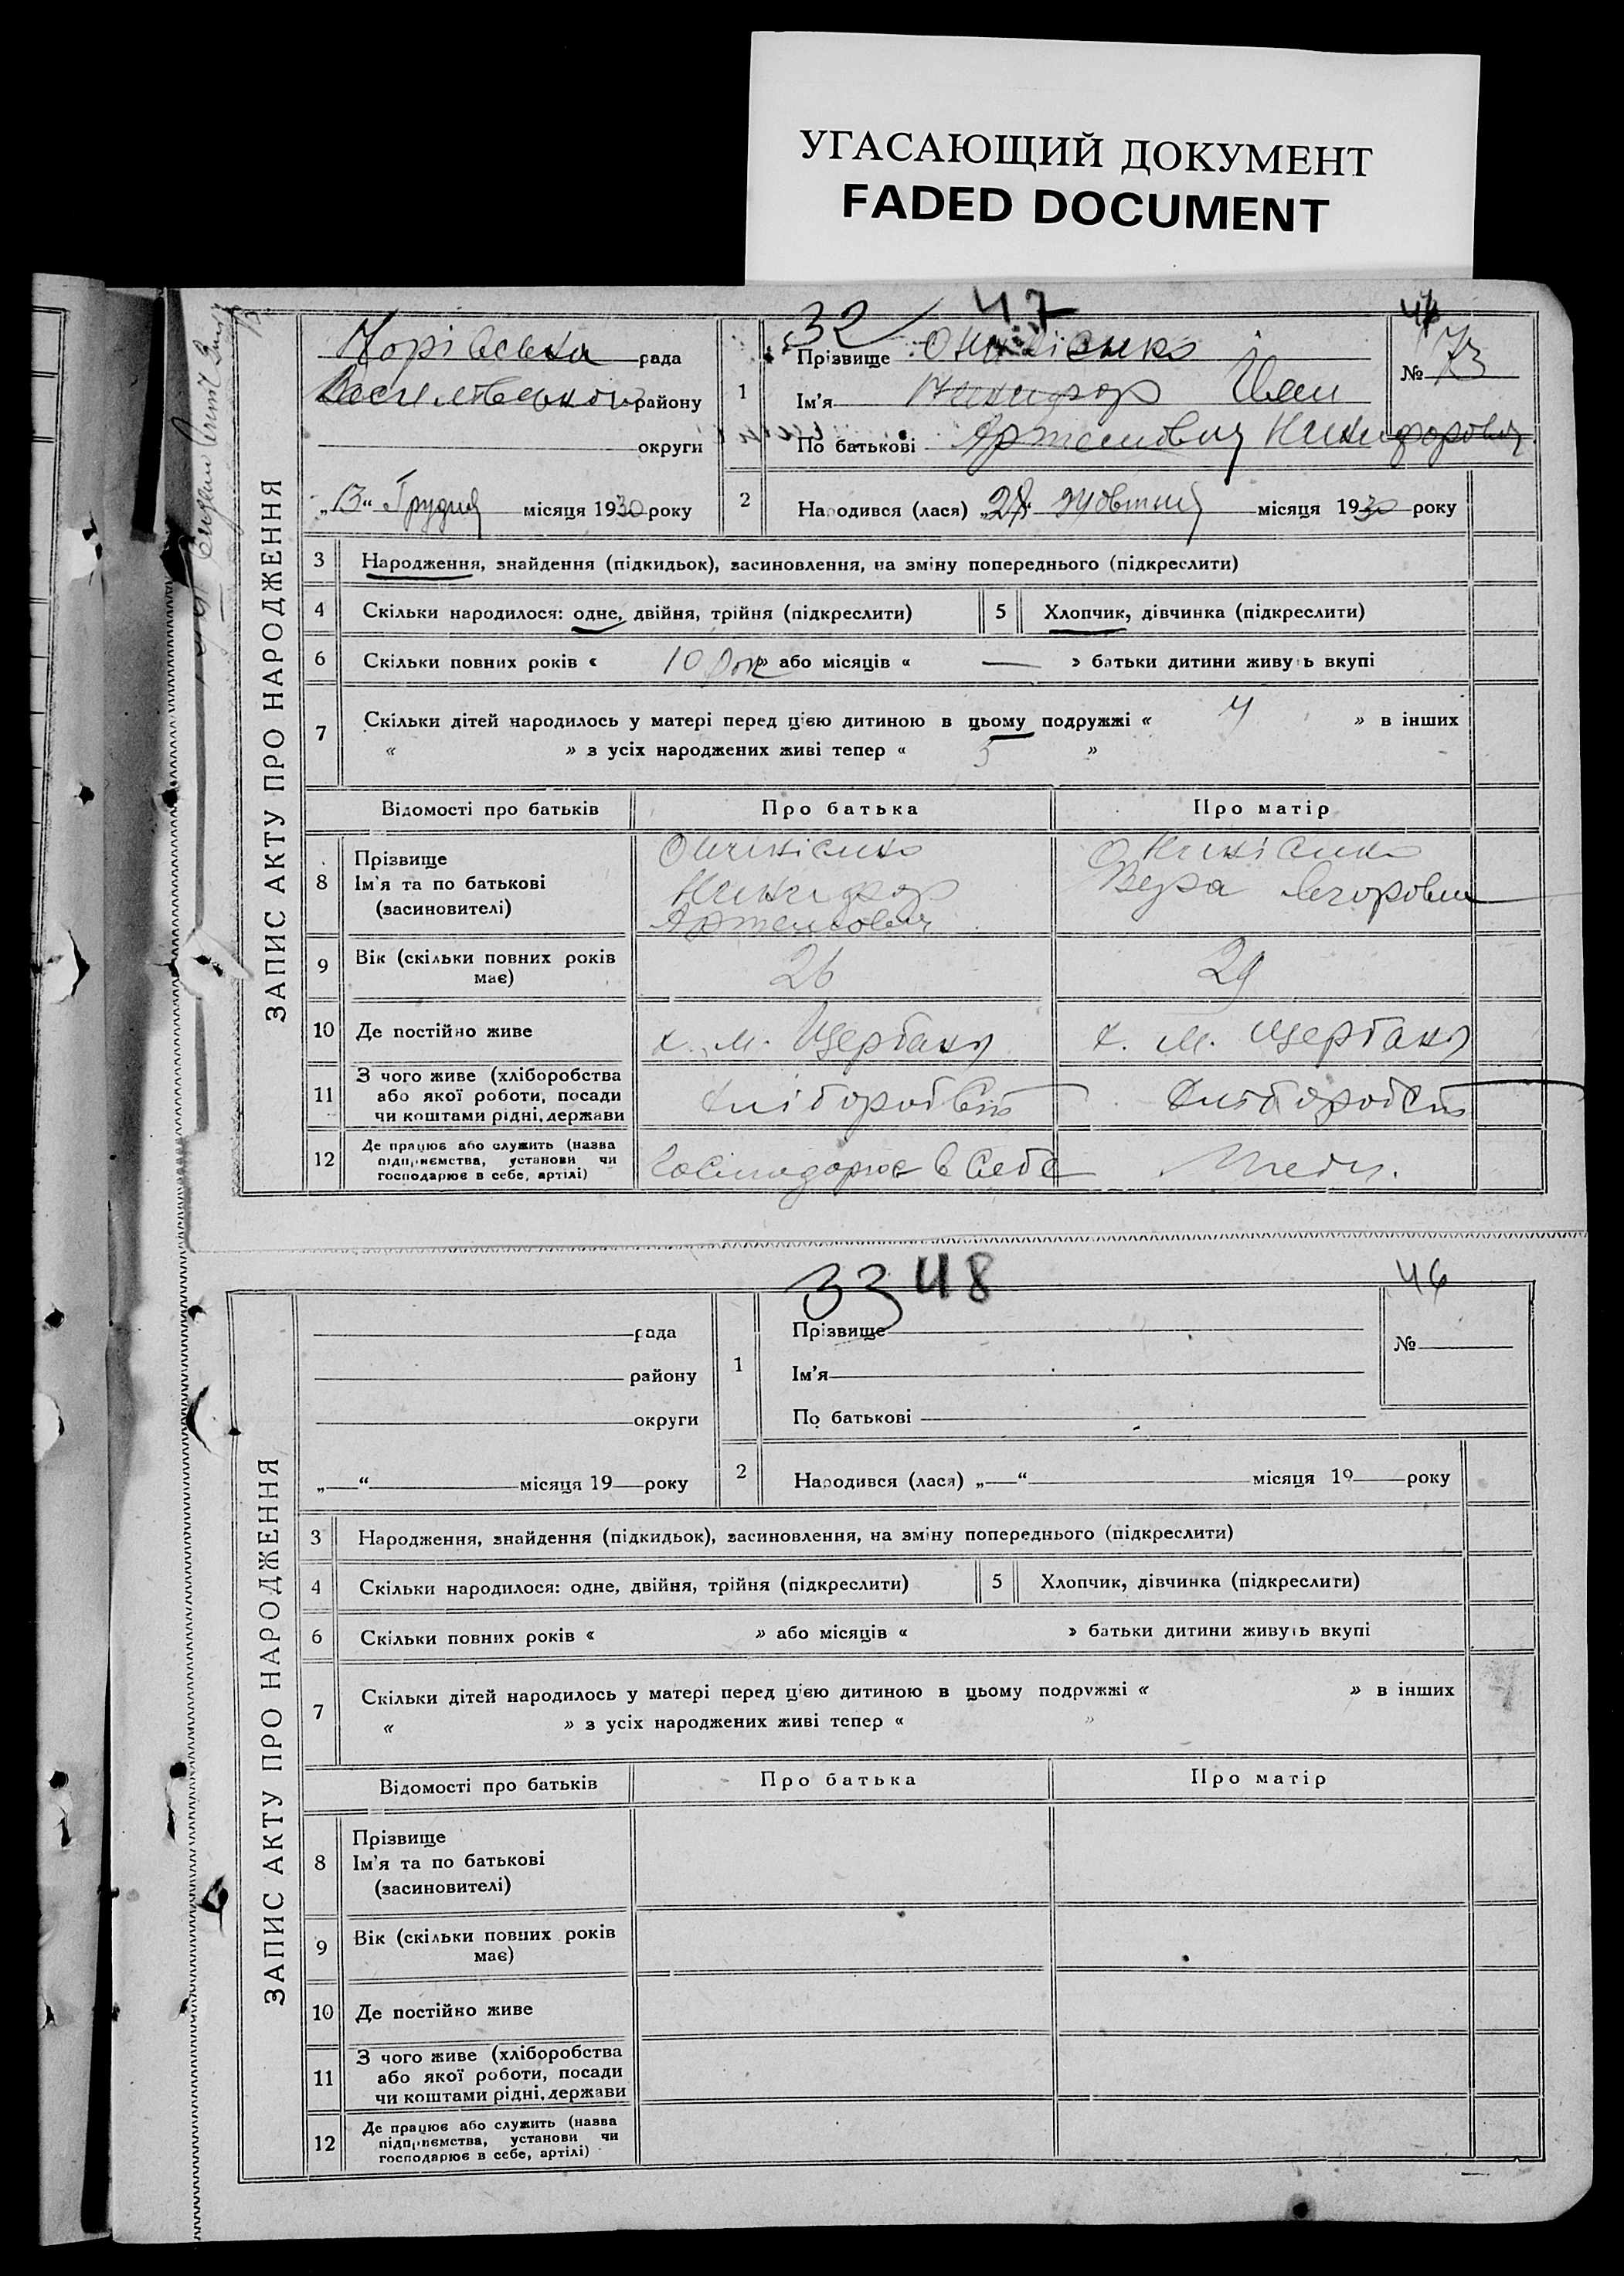 УГАСАЮЩИЙ ДОКУМЕНТ
FADED DOCUMENT
ЗАПИС АКТУ ПРО НАРОДЖЕННЯ
32 47
рада
району
округи
„13“ Грудня місяця 1930 року
1
Прізвище
Ім'я Никифор Іван
По батькові Артемович Никифорович
№ 73
2 Народився (лася) „28“ жовтня місяця 1930 року
3 Народження, знайдення (підкидьок), засиновлення, на зміну попереднього (підкреслити)
4 Скільки народилося: одне, двійня, трійня (підкреслити) 5 Хлопчик, дівчинка (підкреслити)
6 Скільки повних років « 10 рок » або місяців « — » батьки дитини живуть вкупі
7 Скільки дітей народилось у матері перед цією дитиною в цьому подружжі « 4 » в інших
« » з усіх народжених живі тепер « 5 »
Відомості про батьків Про батька Про матір
8 Прізвище
Ім'я та по батькові Никифор Вера Егоровна
(засиновителі) Артемович
9 Вік (скільки повних років має) 26 29
10 Де постійно живе х. м. Щербаки х. м. Щербаки
11 З чого живе (хліборобства
або якої роботи, посади
чи коштами рідні, держави
12 Де працює або служить (назва
підприємства, установи чи
господарює в себе, артілі)
Господарює в себе
33 48 46
ЗАПИС АКТУ ПРО НАРОДЖЕННЯ
рада
району
округи
„ “ місяця 19 року
1
Прізвище
Ім'я
По батькові
№
2 Народився (лася) „ “ місяця 19 року
3 Народження, знайдення (підкидьок), засиновлення, на зміну попереднього (підкреслити)
4 Скільки народилося: одне, двійня, трійня (підкреслити) 5 Хлопчик, дівчинка (підкреслити)
6 Скільки повних років « » або місяців « » батьки дитини живуть вкупі
7 Скільки дітей народилось у матері перед цією дитиною в цьому подружжі « » в інших
« » з усіх народжених живі тепер « »
Відомості про батьків Про батька Про матір
8 Прізвище
Ім'я та по батькові
(засиновителі)
9 Вік (скільки повних років
має)
10 Де постійно живе
11 З чого живе (хліборобства
або якої роботи, посади
чи коштами рідні, держави
12 Де працює або служить (назва
підприємства, установи чи
господарює в себе, артілі)